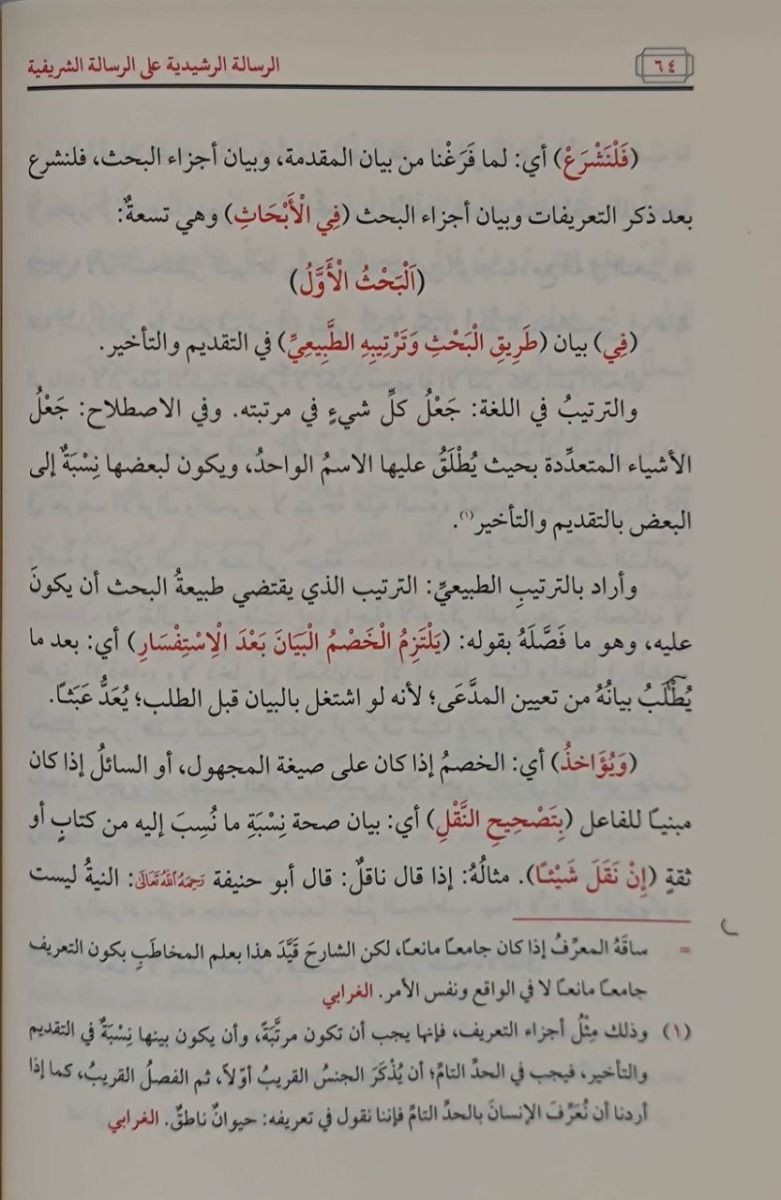 ٦٤ الرسالة الرشيدية على الرسالة الشريفية
(فَلْنَشْرَعْ) أي: لما فَرَغْنا من بيان المقدمة، وبيان أجزاء البحث، فلنشرع
بعد ذكر التعريفات وبيان أجزاء البحث (فِي الْأَبْحَاثِ) وهي تسعةٌ:
(اَلْبَحْثُ الْأَوَّلُ)
(فِي) بيان (طَرِيقِ الْبَحْثِ وَتَرْتِيبِهِ الطَّبِيعِيِّ) في التقديم والتأخير.
والترتيبُ في اللغة: جَعْلُ كلِّ شيءٍ في مرتبته. وفي الاصطلاح: جَعْلُ
الأشياء المتعدِّدة بحيث يُطْلَقُ عليها الاسمُ الواحدُ، ويكون لبعضها نِسْبَةٌ إلى
البعض بالتقديم والتأخير(١).
وأراد بالترتيبِ الطبيعيِّ: الترتيب الذي يقتضي طبيعةُ البحث أن يكونَ
عليه، وهو ما فَصَّلَهُ بقوله: (يَلْتَزِمُ الْخَصْمُ الْبَيَانَ بَعْدَ الِاسْتِفْسَارِ) أي: بعد ما
يُطْلَبُ بيانُهُ من تعيين المدَّعَى؛ لأنه لو اشتغل بالبيان قبل الطلب؛ يُعَدُّ عَبَثًا.
(وَيُؤَاخَذُ) أي: الخصمُ إذا كان على صيغة المجهول، أو السائلُ إذا كان
مبنيًا للفاعل (بِتَصْحِيحِ النَّقْلِ) أي: بيان صحة نِسْبَةِ ما نُسِبَ إليه من كتابٍ أو
ثقةٍ (إِنْ نَقَلَ شَيْئًا). مثالُهُ: إذا قال ناقلٌ: قال أبو حنيفة رَحِمَهُ اللهُ تَعَالَى: النيةُ ليست
= ساقَهُ المعرِّفُ إذا كان جامعًا مانعًا، لكن الشارحَ قَيَّدَ هذا بعلم المخاطَبِ بكون التعريف
جامعًا مانعًا لا في الواقع ونفس الأمر. الغرابي
(١) وذلك مِثْلُ أجزاء التعريف، فإنها يجب أن تكون مرتَّبَةً، وأن يكون بينها نِسْبَةٌ في التقديم
والتأخير، فيجب في الحدِّ التامِّ؛ أن يُذْكَرَ الجنسُ القريبُ أوّلاً، ثم الفصلُ القريبُ، كما إذا
أردنا أن نُعَرِّفَ الإنسانَ بالحدِّ التامِّ فإننا نقول في تعريفه: حيوانٌ ناطقٌ. الغرابي